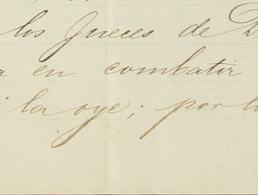 los Jueces de
en combatir
la oye; por